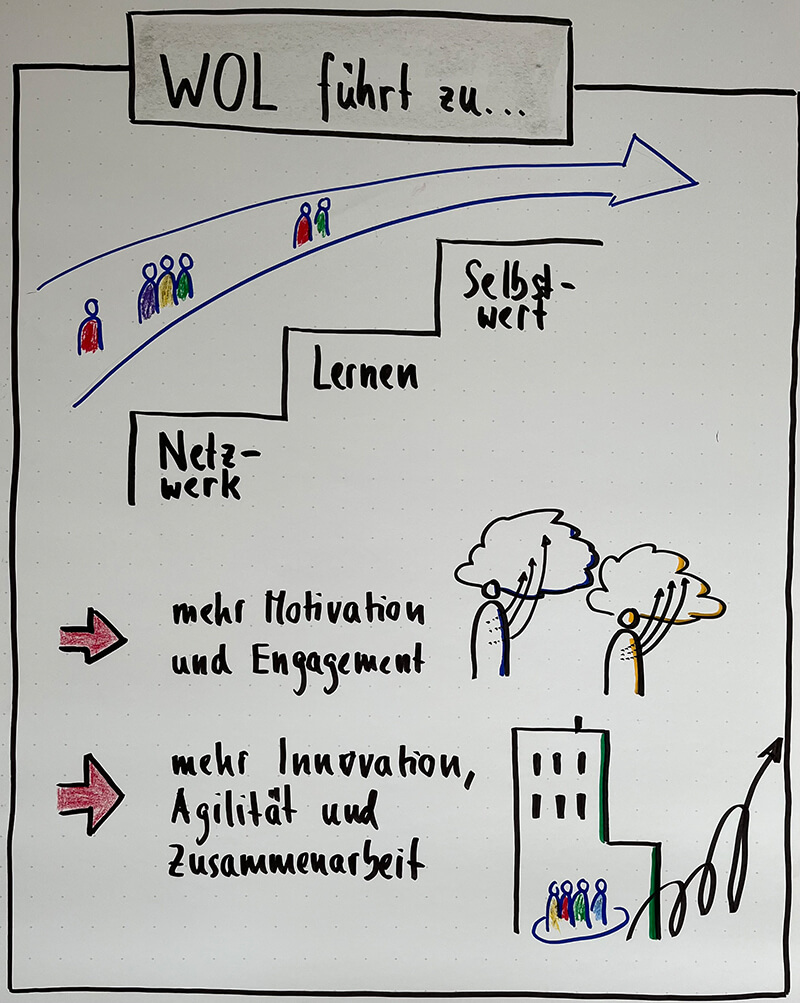 WOL führt zu...
Selbst-
wert
Lernen
Netz-
werk
mehr Motivation
und Engagement
mehr Innovation,
Agilität und
Zusammenarbeit